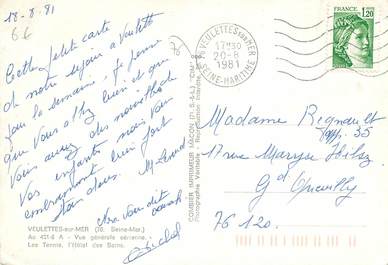 18-8-81
66
Cette petite carte
de notre séjour à Veulette
pour la semaine. Je pense
que vous allez bien et que
Vous aurez des nouvelles de
Vos enfants. nous vous
embrassons bien fort
tous deux.
VEULETTES-sur-MER (76. Seine-Mar.)
Au 451-6 A - Vue générale aérienne.
Les Tennis, l'Hôtel des Bains.
COMBIER IMPRIMEUR MACON (71. S.-&-L.) "CIM"
Photographie Véritable - Reproduction interdite
76 VEULETTES-sur-MER
17H30
20-8
1981
SEINE-MARITIME
FRANCE
1,20
Madame Regnault
17 rue Maryse
Gd Quevilly
76120.